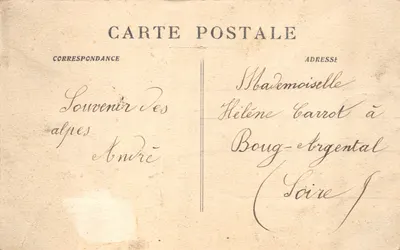 CARTE POSTALE
CORRESPONDANCE
ADRESSE
Souvenir des
alpes
André
Mademoiselle
Hélène Carrot à
Boug-Argental
(Loire)